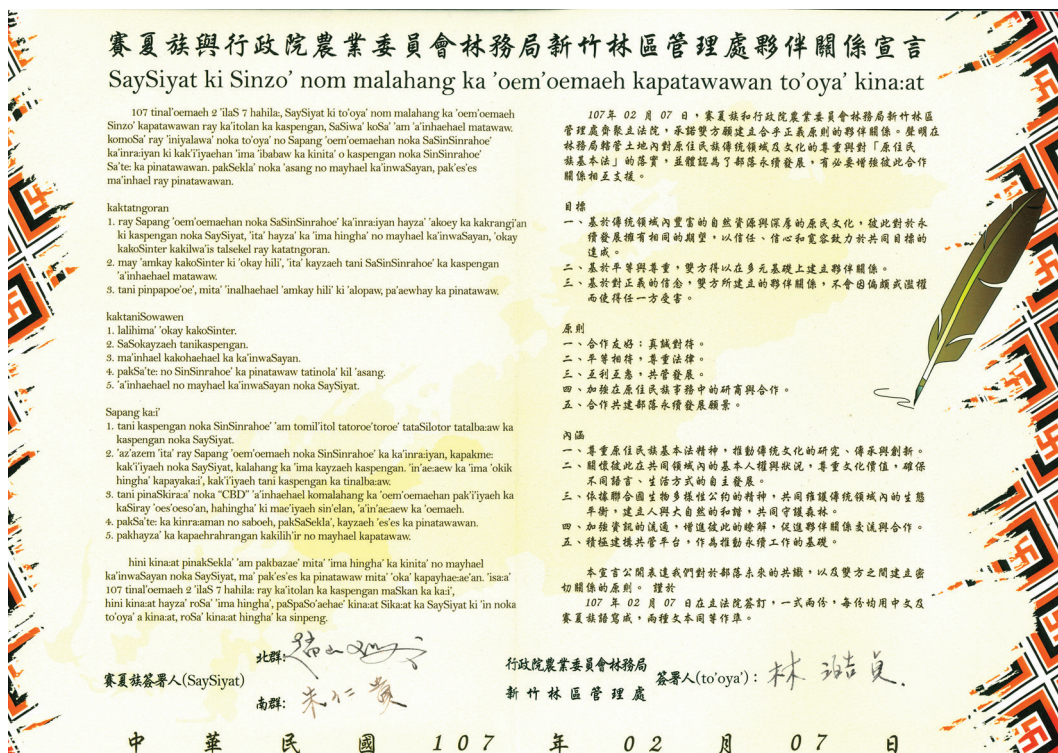 賽夏族與行政院農業委員會林務局新竹林區管理處夥伴關係宣言
SaySiyat ki Sinzo' nom malahang ka 'oem'oemaeh kapatawawan to'oya' kina:at
107 tinal'oemaeh 2 'ilaS 7 hahila:, SaySiyat ki to'oya' nom malahang ka 'oem'oemaeh
Sinzo' kapatawawan ray ka'itolan ka kaspengan, SaSiwa' koSa' 'am 'a'inhaehael matawaw.
komoSa' ray 'iniyalawa' noka to'oya' no Sapang 'oem'oemaehan noka SaSinSinrahoe'
ka'inra:iyan ki kak'i'iyaehan 'ima 'ibabaw ka kinita' o kaspengan noka SinSinrahoe'
Sa'te: ka pinatawawan. pakSekla' noka 'asang no mayhael ka'inwaSayan, pak'es'es
ma'inhael ray pinatawawan.
kaktatngoran
1. ray Sapang 'oem'oemaehan noka SaSinSinrahoe' ka'inra:iyan hayza' 'akoey ka kakrangi'an
ki kaspengan noka SaySiyat, 'ita' hayza' ka 'ima hingha' no mayhael ka'inwaSayan, 'okay
kakoSinter kakilwa'is talsekel ray katatngoran.
2. may 'amkay kakoSinter ki 'okay hili', 'ita' kayzaeh tani SaSinSinrahoe' ka kaspengan
'a'inhaehael matawaw.
3. tani pinpapoe'oe', mita' 'inalhaehael 'amkay hili' ki 'alopaw, pa'aewhay ka pinatawaw.
kaktaniSowawen
1. lalihima' 'okay kakoSinter.
2. SaSokayzaeh tanikaspengan.
3. ma'inhael kakohaehael ka ka'inwaSayan.
4. pakSa'te: no SinSinrahoe' ka pinatawaw tatinola' kil 'asang.
5. 'a'inhaehael no mayhael ka'inwaSayan noka SaySiyat.
Sapang ka:i'
1. tani kaspengan noka SinSinrahoe' 'am tomil'itol tatoroe'toroe' tataSilotor tatalba:aw ka
kaspengan noka SaySiyat.
2. 'az'azem 'ita' ray Sapang 'oem'oemaeh noka SinSinrahoe' ka ka'inra:iyan, kapakme:
kak'i'iyaeh noka SaySiyat, kalahang ka 'ima kayzaeh kaspengan. 'in'ae:aew ka 'ima 'okik
hingha' kapayaka:i', kak'i'iyaeh tani kaspengan ka tinalba:aw.
3. tani pinaSkira:a' noka "CBD" 'a'inhaehael komalahang ka 'oem'oemaehan pak'i'iyaeh ka
kaSiray 'oes'oeso'an, hahingha' ki mae'iyaeh sin'elan, 'a'in'ae:aew ka 'oemaeh.
4. pakSa'te: ka kinra:aman no saboeh, pakSaSekla', kayzaeh 'es'es ka pinatawawan.
5. pakhayza' ka kapaehrahrangan kakilih'ir no mayhael kapatawaw.
hini kina:at pinakSekla' 'am pakbazae' mita' 'ima hingha' ka kinita' no mayhael
ka'inwaSayan noka SaySiyat, ma' pak'es'es ka pinatawaw mita' 'oka' kapayhae:ae'an. 'isa:a'
107 tinal'oemaeh 2 'ilaS 7 hahila: ray ka'itolan ka kaspengan maSkan ka ka:i',
hini kina:at hayza' roSa' 'ima hingha', paSpaSo'aehae' kina:at Sika:at ka SaySiyat ki 'in noka
to'oya' a kina:at, roSa' kina:at hingha' ka sinpeng.
107年 02 月 07 日，賽夏族和行政院農業委員會林務局新竹林區
管理處齊聚立法院，承諾雙方願建立合乎正義原則的夥伴關係。聲明在
林務局轄管土地內對原住民族傳統領域及文化的尊重與對「原住民
族基本法」的落實，並體認為了部落永續發展，有必要增強彼此合作
關係相互支援。
目標
一、基於傳統領域內豐富的自然資源與深厚的原民文化，彼此對於永
續發展擁有相同的期望，以信任、信心和寬容致力於共同目標的
達成。
二、基於平等與尊重，雙方得以在多元基礎上建立夥伴關係。
三、基於對正義的信念，雙方所建立的夥伴關係，不會因偏頗或濫權
而使得任一方受害。
原則
一、合作友好；真誠對待。
二、平等相待，尊重法律。
三、互利互惠，共管發展。
四、加強在原住民族事務中的研商與合作。
五、合作共建部落永續發展願景。
內涵
一、尊重原住民族基本法精神，推動傳統文化的研究、傳承與創新。
二、關懷彼此在共同領域內的基本人權與狀況，尊重文化價值，確保
不同語言、生活方式的自主發展。
三、依據聯合國生物多樣性公約的精神，共同維護傳統領域內的生態
平衡，建立人與大自然的和諧，共同守護森林。
四、加強資訊的流通，增進彼此的瞭解，促進夥伴關係交流與合作。
五、積極建構共管平台，作為推動永續工作的基礎。
本宣言公開表達我們對於部落未來的共識，以及雙方之間建立密
切關係的原則。 謹於
107 年 02 月 07 日在立法院簽訂，一式兩份，每份均用中文及
賽夏族語寫成，兩種文本同等作準。
賽夏族簽署人(SaySiyat)
北群:
南群: 朱仁貴
行政院農業委員會林務局
新竹林區管理處
簽署人(to'oya')： 林澔貞
中華民國 107 年 02 月 07 日